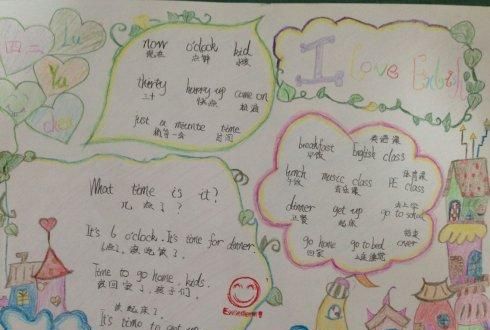 四三
Lu
Ya
chen
now o'clock kid
现在 点钟 小孩
thirty hurry up come on
三十 快点
just a meunte time
稍等一会 时间
I Love English
breakfast English class
早饭 英语课
lunch music class PE class
午饭 音乐课 体育课
dinner get up go to school
正餐 起床 去上学
go home go to bed over
回家 上床睡觉 结束
What time is it?
几点了?
It's 6 o'clock. It's time for dinner.
6点了,该吃饭了。
Time to go home, kids.
该回家了,孩子们。
该起床了。
It's time to get up
Excellent!